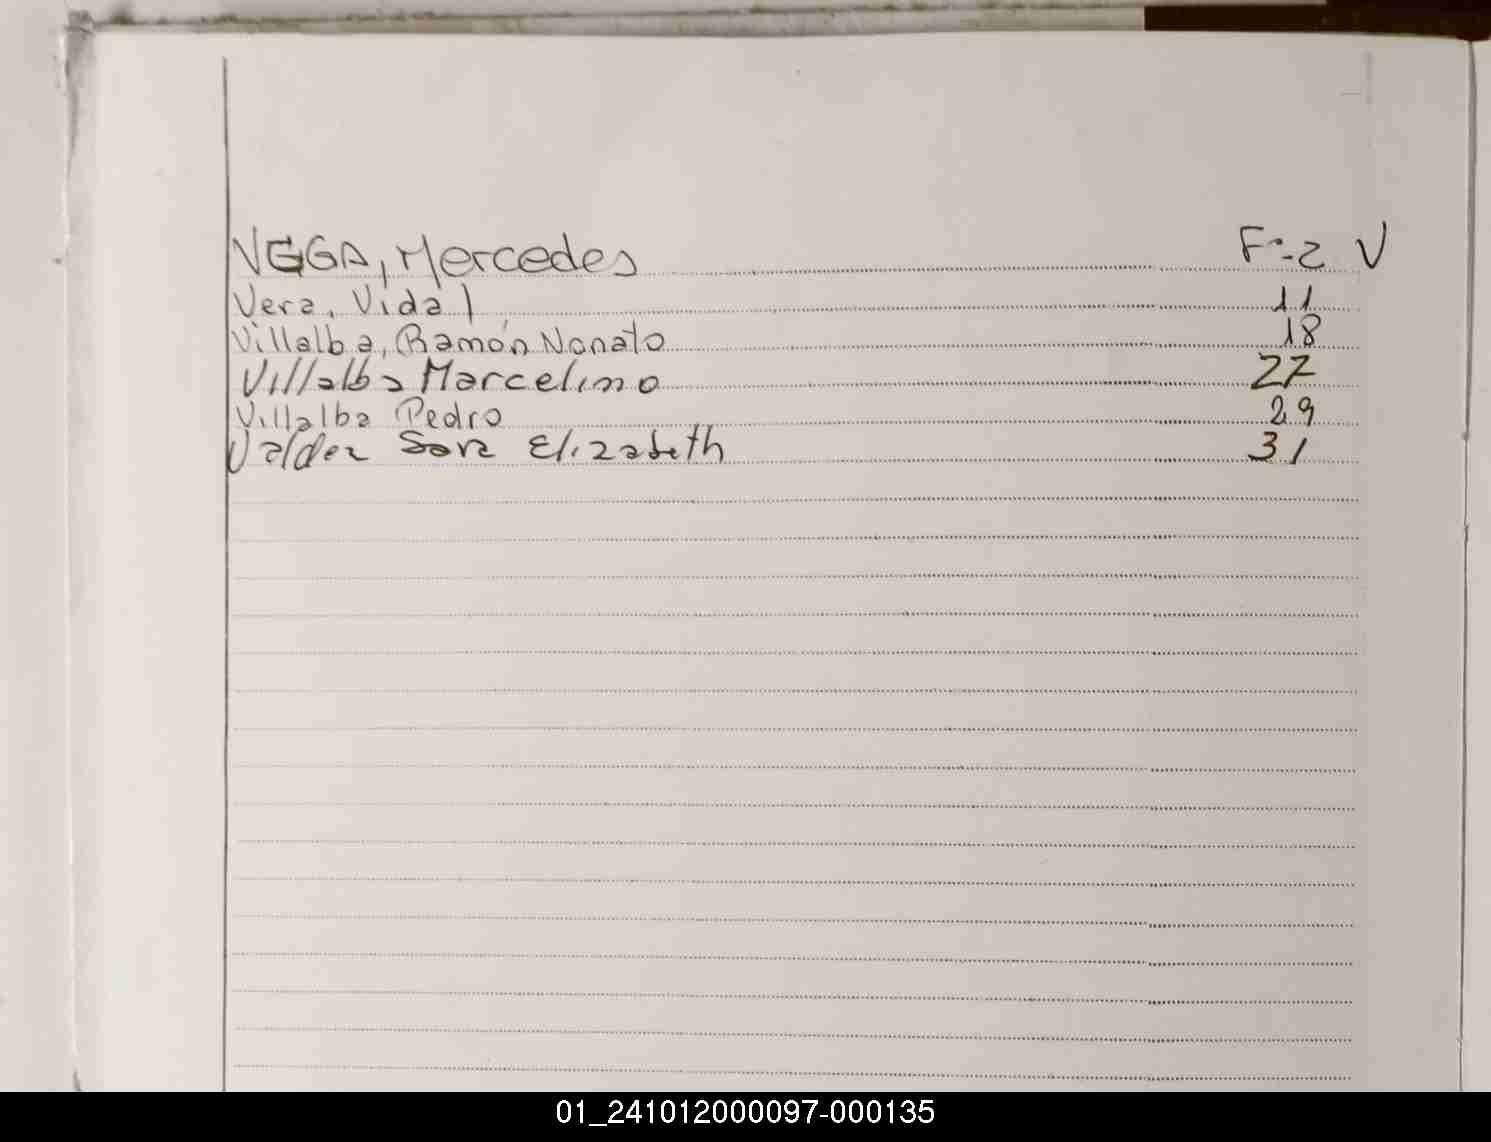 VEGA, Mercedes F:-2 V
Vera, Vidal 11
Villalba, Ramón Nonato 18
Villalba Marcelino 27
Villalba Pedro 29
Valdez Sara Elizabeth 31
01_241012000097-000135